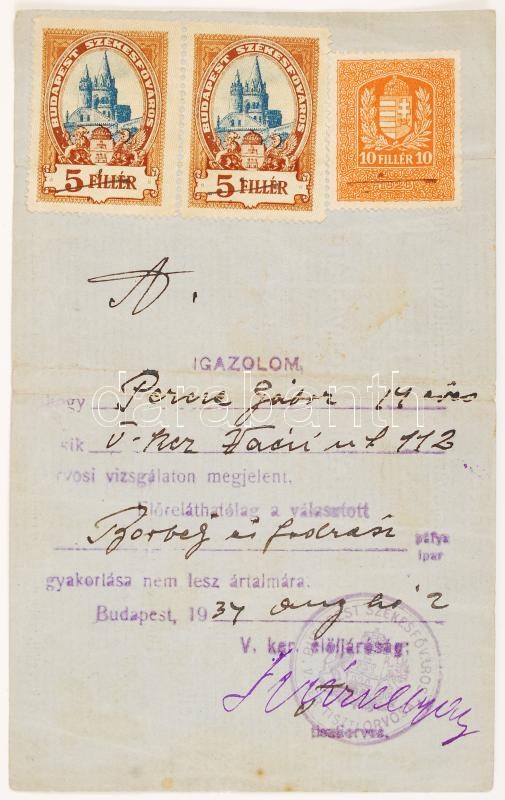 BUDAPEST SZÉKESFŐVÁROS BUDAPEST SZÉKESFŐVÁROS
5 FILLÉR 5 FILLÉR 10 FILLÉR 10
A.
IGAZOLOM,
hogy Gábor 14 éves
V. ker Váci út 112
orvosi vizsgálaton megjelent.
Előreláthatólag a választott
Borbély és fodrász pálya
ipar
gyakorlása nem lesz ártalmára.
Budapest, 1937 aug hó 2
V. ker. elöljáróság
BUDAPEST SZÉKESFŐVÁROS
tisztiorvos.
darabanth